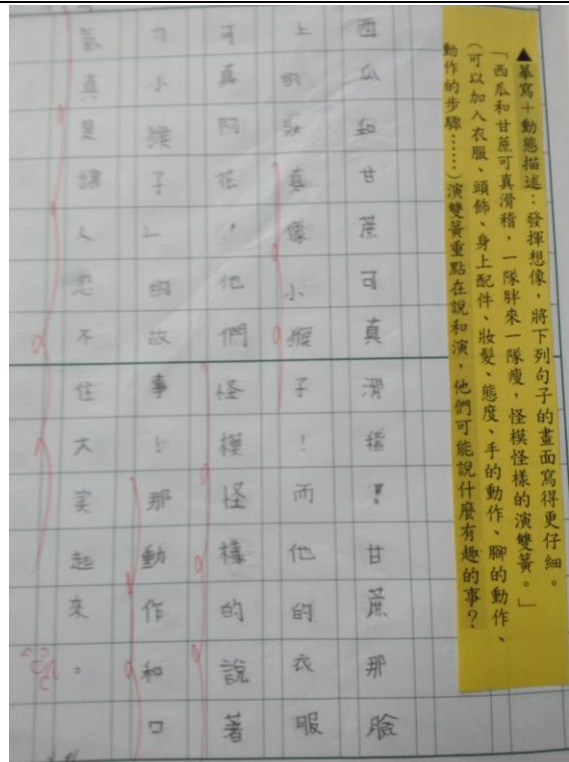 ▲摹寫＋動態描述：發揮想像，將下列句子的畫面寫得更仔細。
「西瓜和甘蔗可真滑稽，一隊胖來一隊瘦，怪模怪樣的演雙簧。」
（可以加入衣服、頭飾、身上配件、妝髮、態度、手的動作、腳的動作、
動作的步驟……）演雙簧重點在說和演，他們可能說什麼有趣的事？
西瓜和甘蔗可真滑稽！甘蔗那臉
上的妝真像小猴子！而他的衣服
可真花！他們怪模怪樣的說著
「小猴子」的故事！那動作和口
氣真是讓人忍不住大笑起來。